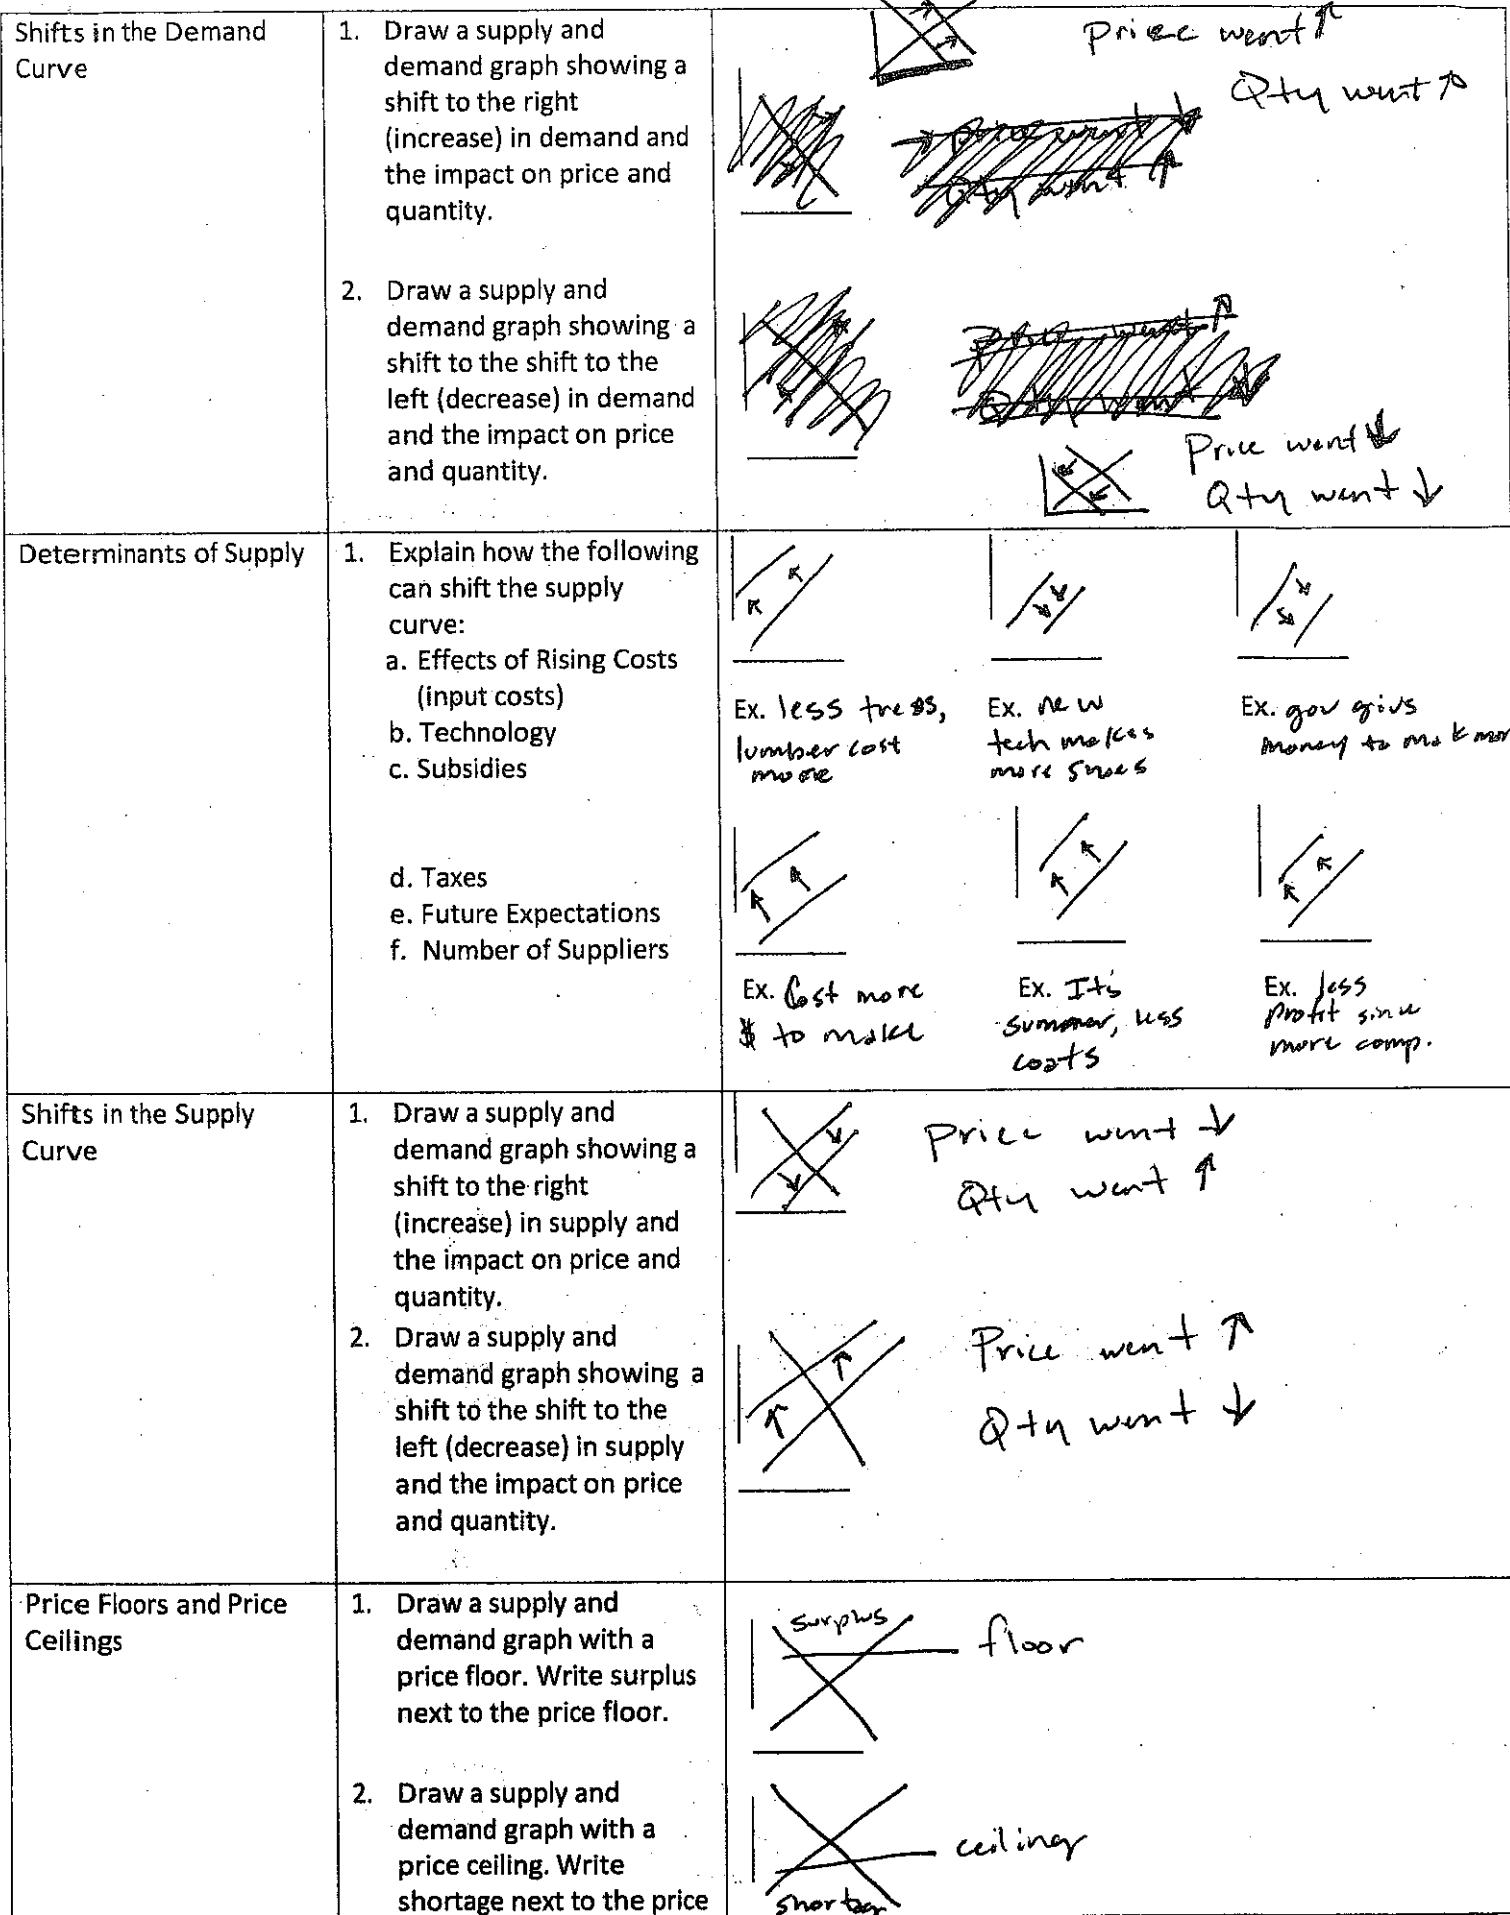 Shifts in the Demand
Curve
1. Draw a supply and
demand graph showing a
shift to the right
(increase) in demand and
the impact on price and
quantity.
Price went ↑
Qty went ↑
price went ↓
Qty went ↑
2. Draw a supply and
demand graph showing a
shift to the shift to the
left (decrease) in demand
and the impact on price
and quantity.
Price went ↑
Qty went ↓
Price went ↓
Qty went ↓
Determinants of Supply
1. Explain how the following
can shift the supply
curve:
a. Effects of Rising Costs
(input costs)
b. Technology
c. Subsidies
d. Taxes
e. Future Expectations
f. Number of Suppliers
Ex. less tress,
lumber cost
more
Ex. new
tech makes
more shoes
Ex. gov givs
money to mak mor
Ex. Cost more
$ to make
Ex. It's
summer, less
coats
Ex. less
profit since
more comp.
Shifts in the Supply
Curve
1. Draw a supply and
demand graph showing a
shift to the right
(increase) in supply and
the impact on price and
quantity.
Price went ↓
Qty went ↑
2. Draw a supply and
demand graph showing a
shift to the shift to the
left (decrease) in supply
and the impact on price
and quantity.
Price went ↑
Qty went ↓
Price Floors and Price
Ceilings
1. Draw a supply and
demand graph with a
price floor. Write surplus
next to the price floor.
surplus
floor
2. Draw a supply and
demand graph with a
price ceiling. Write
shortage next to the price
ceiling